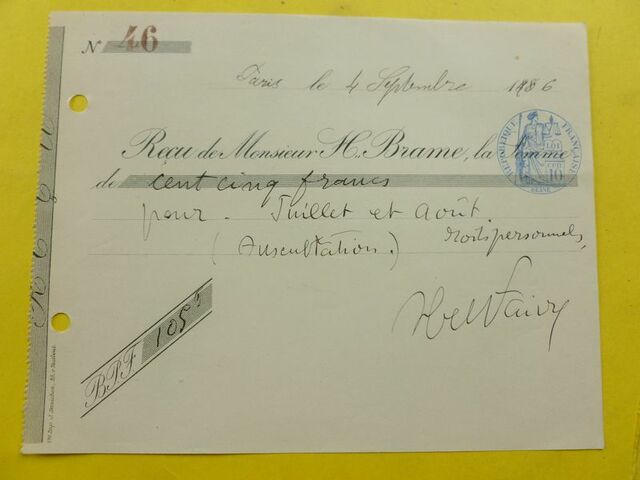 N 46
Paris le 4 Septembre 1886
Reçu de Monsieur H. Brame, la Somme
de cent cinq francs
pour Juillet et Août.
(Auscultation.) droits personnels,
B.P.F. 105
REPUBLIQUE FRANÇAISE
LOI
10
SEINE